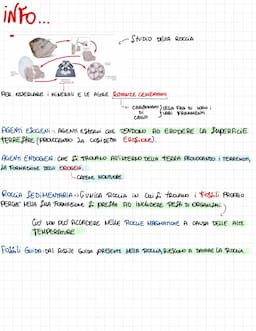 INFO...
STUDIO DELLA ROCCIA
PER OSSERVARE I MINERALI E LE ALTRE SOSTANZE CEMENTANTI
CARBONATO DI CALCIO
LEGA FRA DI LORO I VARI FRAMMENTI
AGENTI ESOGENI: AGENTI ESTERNI CHE TENDONO AD ERODERE LA SUPERFICIE
TERRESTRE (PROVOCANDO LA COSÌDETTA EROSIONE).
AGENTI ENDOGENI CHE SI TROVANO ALL'INTERNO DELLA TERRA PROVOCANDO I TERREMOTI,
LA FORMAZIONE DELL' OROGENI.
CATENE MONTUOSE
ROCCIA SEDIMENTARIA: L'UNICA ROCCIA IN CUI SI TROVANO I FOSSILI PROPRIO
PERCHÈ NELLA SUA FORMAZIONE SI PRESTA AD INCLUDERE RESTI DI ORGANISMI
CIÒ NON PUÒ ACCADERE NELLE ROCCE MAGMATICHE A CAUSA DELLE ALTE
TEMPERATURE
FOSSILI GUIDA: DAI FOSSILI GUIDA PRESENTE NELLA ROCCIA, RIESCONO A DATARE LA ROCCIA